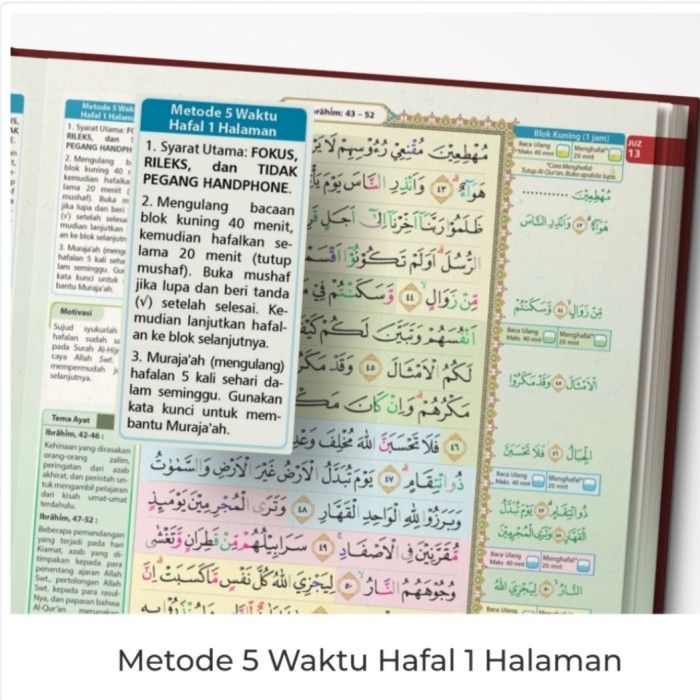 Metode 5 Waktu
Hafal 1 Halaman
1. Syarat Utama: FOKUS,
RILEKS, dan TIDAK
PEGANG HANDPHONE.
2. Mengulang bacaan
blok kuning 40 menit,
kemudian hafalkan se-
lama 20 menit (tutup
mushaf). Buka mushaf
jika lupa dan beri tanda
(√) setelah selesai. Ke-
mudian lanjutkan hafal-
an ke blok selanjutnya.
3. Muraja'ah (mengulang)
hafalan 5 kali sehari da-
lam seminggu. Gunakan
kata kunci untuk mem-
bantu Muraja'ah.
Motivasi
Sujud syukurlah
hafalan sudah
pada Surah Al-Hij
caya Allah Swt.
mempermudah
selanjutnya.
Tema Ayat
Ibrâhîm, 42-46 :
Kehinaan yang dirasakan
orang-orang zalim,
peringatan dari azab
akhirat, dan perintah un-
tuk mengambil pelajaran
dari kisah umat-umat
terdahulu.
Ibrâhîm, 47-52 :
Beberapa pemandangan
yang terjadi pada hari
Kiamat, azab yang di-
timpakan kepada para
penentang ajaran Allah
Swt., pertolongan Allah
Swt. kepada para rasul-
Nya, dan paparan bahwa
Al-Qur'an merupakan
brâhîm: 43 – 52
مُهْطِعِيْنَ مُقْنِعِيْ رُءُوْسِهِمْ لَا
هَوَاۤءٌ ٤٣ وَاَنْذِرِ النَّاسَ يَوْمَ
ظَلَمُوْا رَبَّنَآ اَخِّرْنَآ اِلٰٓى اَجَلٍ
الرُّسُلَ اَوَلَمْ تَكُوْنُوْٓا
مِّنْ زَوَالٍ ٤٤ وَّسَكَنْتُمْ فِيْ
اَنْفُسَهُمْ وَتَبَيَّنَ لَكُمْ كَيْفَ
لَكُمُ الْاَمْثَالَ ٤٥ وَقَدْ مَكَرُ
مَكْرُهُمْ وَاِنْ كَانَ
فَلَا تَحْسَبَنَّ اللّٰهَ مُخْلِفَ وَعْدِ
ذُو انْتِقَامٍ ٤٧ يَوْمَ تُبَدَّلُ الْاَرْضُ غَيْرَ الْاَرْضِ وَالسَّمٰوٰتُ
وَبَرَزُوْا لِلّٰهِ الْوَاحِدِ الْقَهَّارِ ٤٨ وَتَرَى الْمُجْرِمِيْنَ يَوْمَىِٕذٍ
مُّقَرَّنِيْنَ فِى الْاَصْفَادِ ٤٩ سَرَابِيْلُهُمْ مِّنْ قَطِرَانٍ وَّتَغْشٰى
وُجُوْهَهُمُ النَّارُ ٥٠ لِيَجْزِيَ اللّٰهُ كُلَّ نَفْسٍ مَّا كَسَبَتْ اِنَّ
Blok Kuning (1 jam)
Baca Ulang Maks. 40 mnt
Menghafal* 20 mnt
*Cara Menghafal:
Tutup Al-Qur'an. Buka apabila lupa.
JUZ
13
مُهْطِعِيْنَ
هَوَاۤءٌ ٤٣ وَاَنْذِرِ النَّاسَ
مِّنْ زَوَالٍ ٤٤ وَّسَكَنْتُمْ
Baca Ulang Maks. 40 mnt
Menghafal* 20 mnt
الْاَمْثَالَ ٤٥ وَقَدْ مَكَرُوْا
الْجِبَالُ ٤٦ فَلَا تَحْسَبَنَّ
Baca Ulang Maks. 40 mnt
Menghafal* 20 mnt
ذُو انْتِقَامٍ ٤٧ يَوْمَ تُبَدَّلُ
الْقَهَّارِ ٤٨ وَتَرَى الْمُجْرِمِيْنَ
Baca Ulang Maks. 40 mnt
Menghafal* 20 mnt
النَّارُ ٥٠ لِيَجْزِيَ اللّٰهُ
Metode 5 Waktu Hafal 1 Halaman